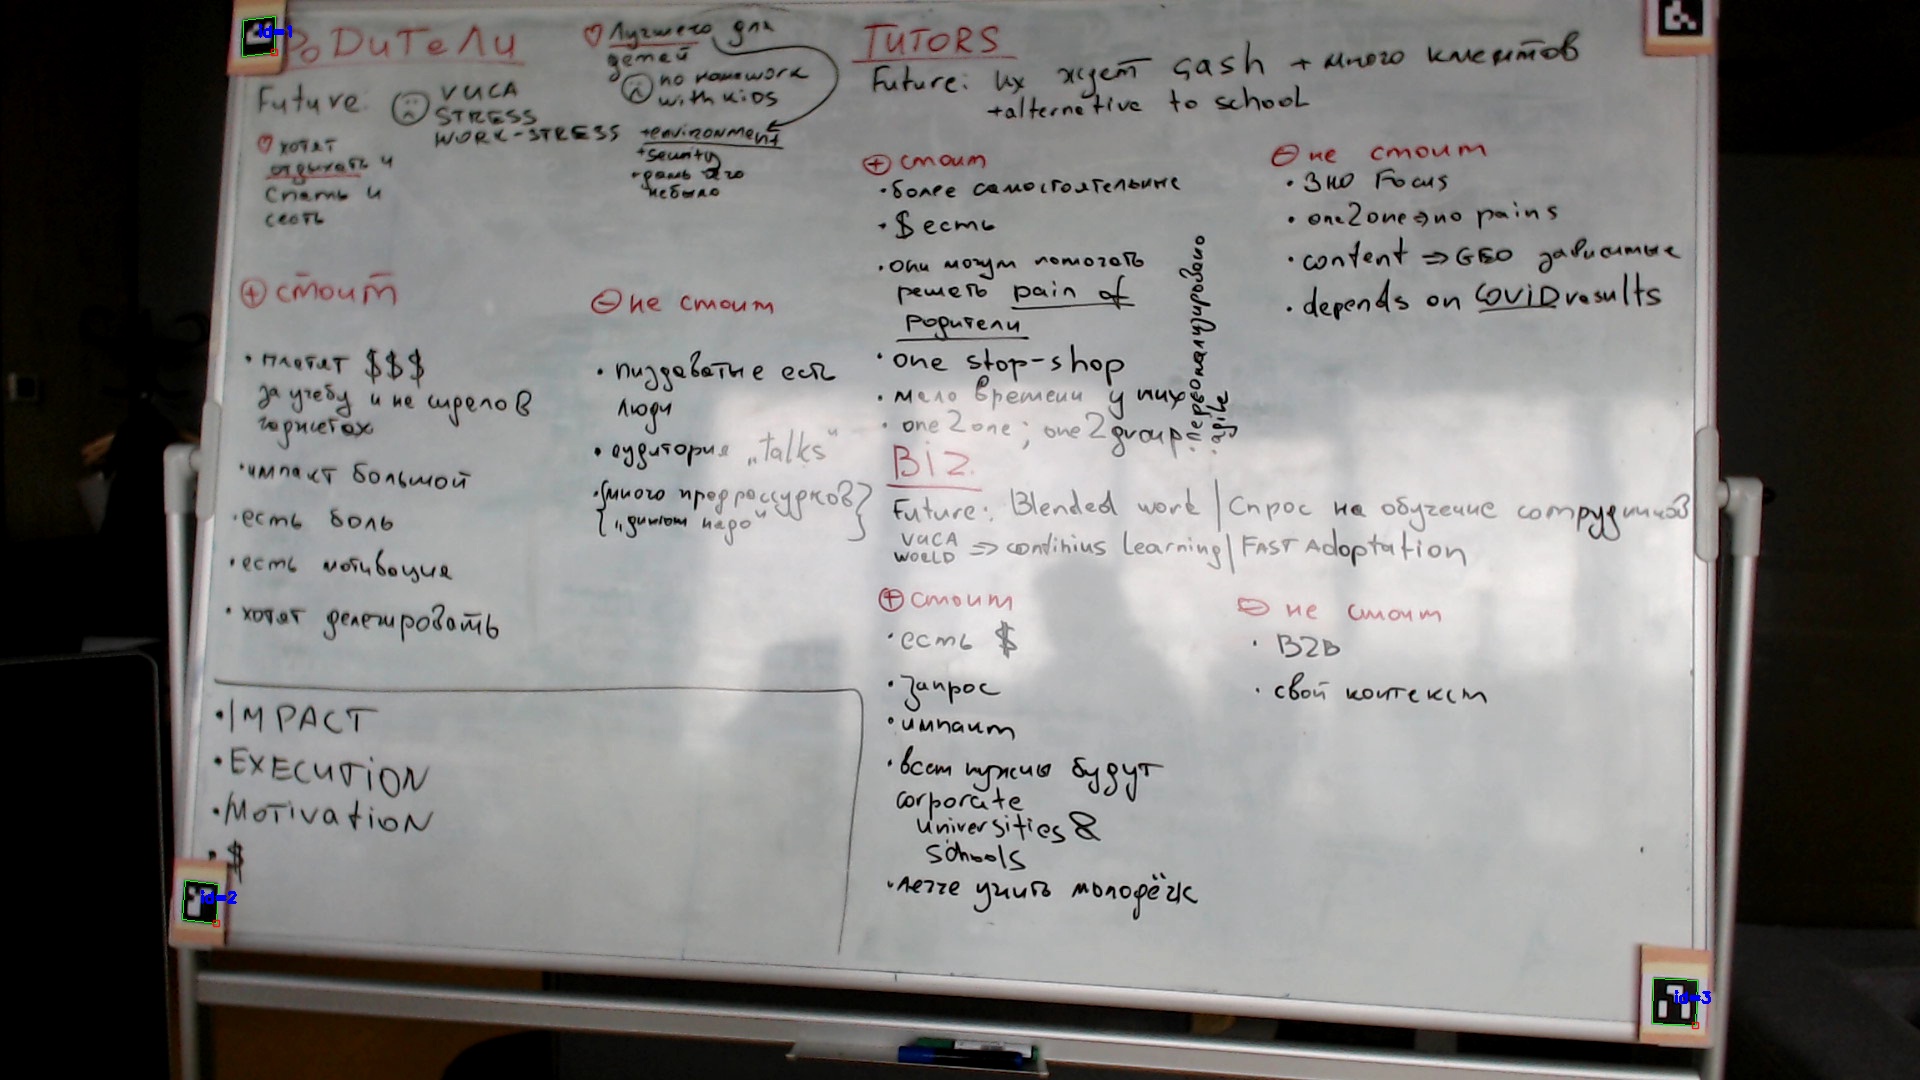 РОДИТЕЛИ
Future:
VUCA
STRESS
WORK-STRESS
хотят
отдыхать и
спать и
Лучшего для
детей
no homework
with kids
+environment
небыло
+ стоит
• платят $$$
за учебу и не
• импакт большой
• есть боль
• есть мотивация
• хотят делегировать
- не стоит
• пиздаватые есть
люди
• аудитория „talks“
• {много предрассудков}
{„диплом надо“}
• IMPACT
• EXECUTION
• MOTIVATION
• $
TUTORS
Future: их ждет cash + много клиентов
+alternetive to school
+ стоит
• более самостоятельные
• $ есть
• они могут помогать
решать pain of
родители
• one stop-shop
• мало времени у них
• one2one; one2group
• персонализировано
• agile
- не стоит
• ЗНО Focus
• one2one => no pains
• content => GEO зависимые
• depends on COVID results
Biz.
Future: Blended work | Спрос на обучение сотрудников
VUCA
WORLD => continius Learning | FAST Adoptation
+ стоит
• есть $
• запрос
• импакт
• всем нужны будут
corporate
universities &
schools
• легче учить молодёж
- не стоит
• B2B
• свой контекст